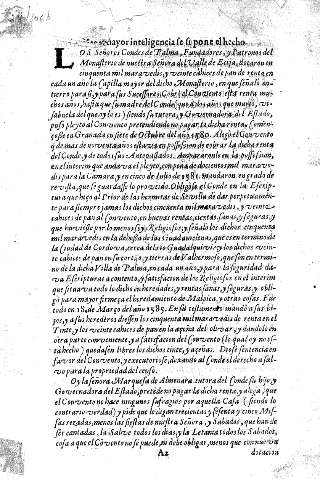 Para mayor inteligencia se supone el hecho.
LOs Señores Condes de Palma, Fundadores, y Patronos del
Monasterio de nuestra Señora del Valle de Ecija, dotaron en
cincuenta mil maravedis, y veinte cahizes de pan de renta en
cada un año la Capilla mayor del dicho Monasterio, en que señalā
terro para si, y para sus Sucessores. Cobró el Convento esta renta mu-
chos años, hasta que su madre del Conde
que es) siendo su tutora, y Governadora del Estado,
puso pleyto al Convento pretendiendo no pagar la dicha renta.
se en Granada en siete de Octubre del año 1580. Alegó el Convento
q̄ de mas de noventa años estava en possession de cobrar la dicha renta
del Conde, y de todos sus Antepassados, ampararonle en la possession,
en el interim que andava el pleyto, con pena de docientos mil marave-
dis para la Camara, y en cinco de Julio de 1581. mandaron en grado de
revista, que se guardasse lo proveido. Obligòse el Conde en la Escrip-
tura que hizo al Prior de las hermitas de Sevilla de dar perpetuamen-
te para siempre jamas los dichos cincuenta mil maravedis, y veinte
cahizes de pan al Convento, en buenas rentas, ciertas, sanas, y seguras, y
que señalò los dichos cinquenta
mil maravedis en la dehesa de las que es en termino de
la ciudad de Cordova, cerca de Guadalquivir, y los dichos vein-
te cahizes de pan en su cortijo, y tierras de Valhermoso, que son en termi-
no de la dicha Villa de Palma, y para seguridad da-
va Escripturas a contento, y satisfacion de los Religiosos en el interim
que situava todo lo dicho en heredades, y rentas sanas, y seguras, y obli-
gò para mayor firmeça el heredamiento de Malpica, y otras cosas. Fue
todo en 1. de Março del año 1585. En su testamento mandò a su hi-
jo, y a sus herederos diessen los cinquenta mil maravedis de renta en el
Tinte, y los veinte cahizes de pan en la açeña del obrar, y dandolo en
otra parte conveniente, y a satisfacion del Convento (lo qual oy no es-
tà hecho) quedassen libres los dichos tinte, y açeñas. Diose sentencia en
favor del Convento, y executoriose, dexando al Conde el derecho a sal-
vo para la propriedad del censo.
Oy la señora Marquesa de Almenara tutora del Conde su hijo, y
Governadora del Estado, pretende no pagar la dicha renta, y alega, que
el Convento no hace ningunos sufragios por aquella Casa (siendo lo
contrario verdad) y pide que le digan trecientas y sesenta y cinco Mis-
sas rezadas, menos las fiestas de nuestra Señora, y Sabados, que han de
ser cantadas, la Salve todos los dias, y la Letania todos los Sabados,
cosa a que el Convento no se puede, ni debe obligar, menos que con nueva
A2 dotacion